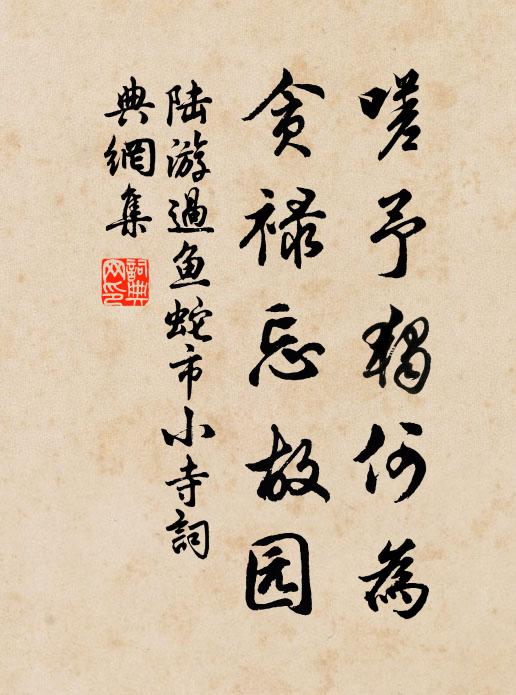 嗟予独何為
贪禄忘故园
陆游過鱼蛇市小寺詞
典網集
詞典
网印